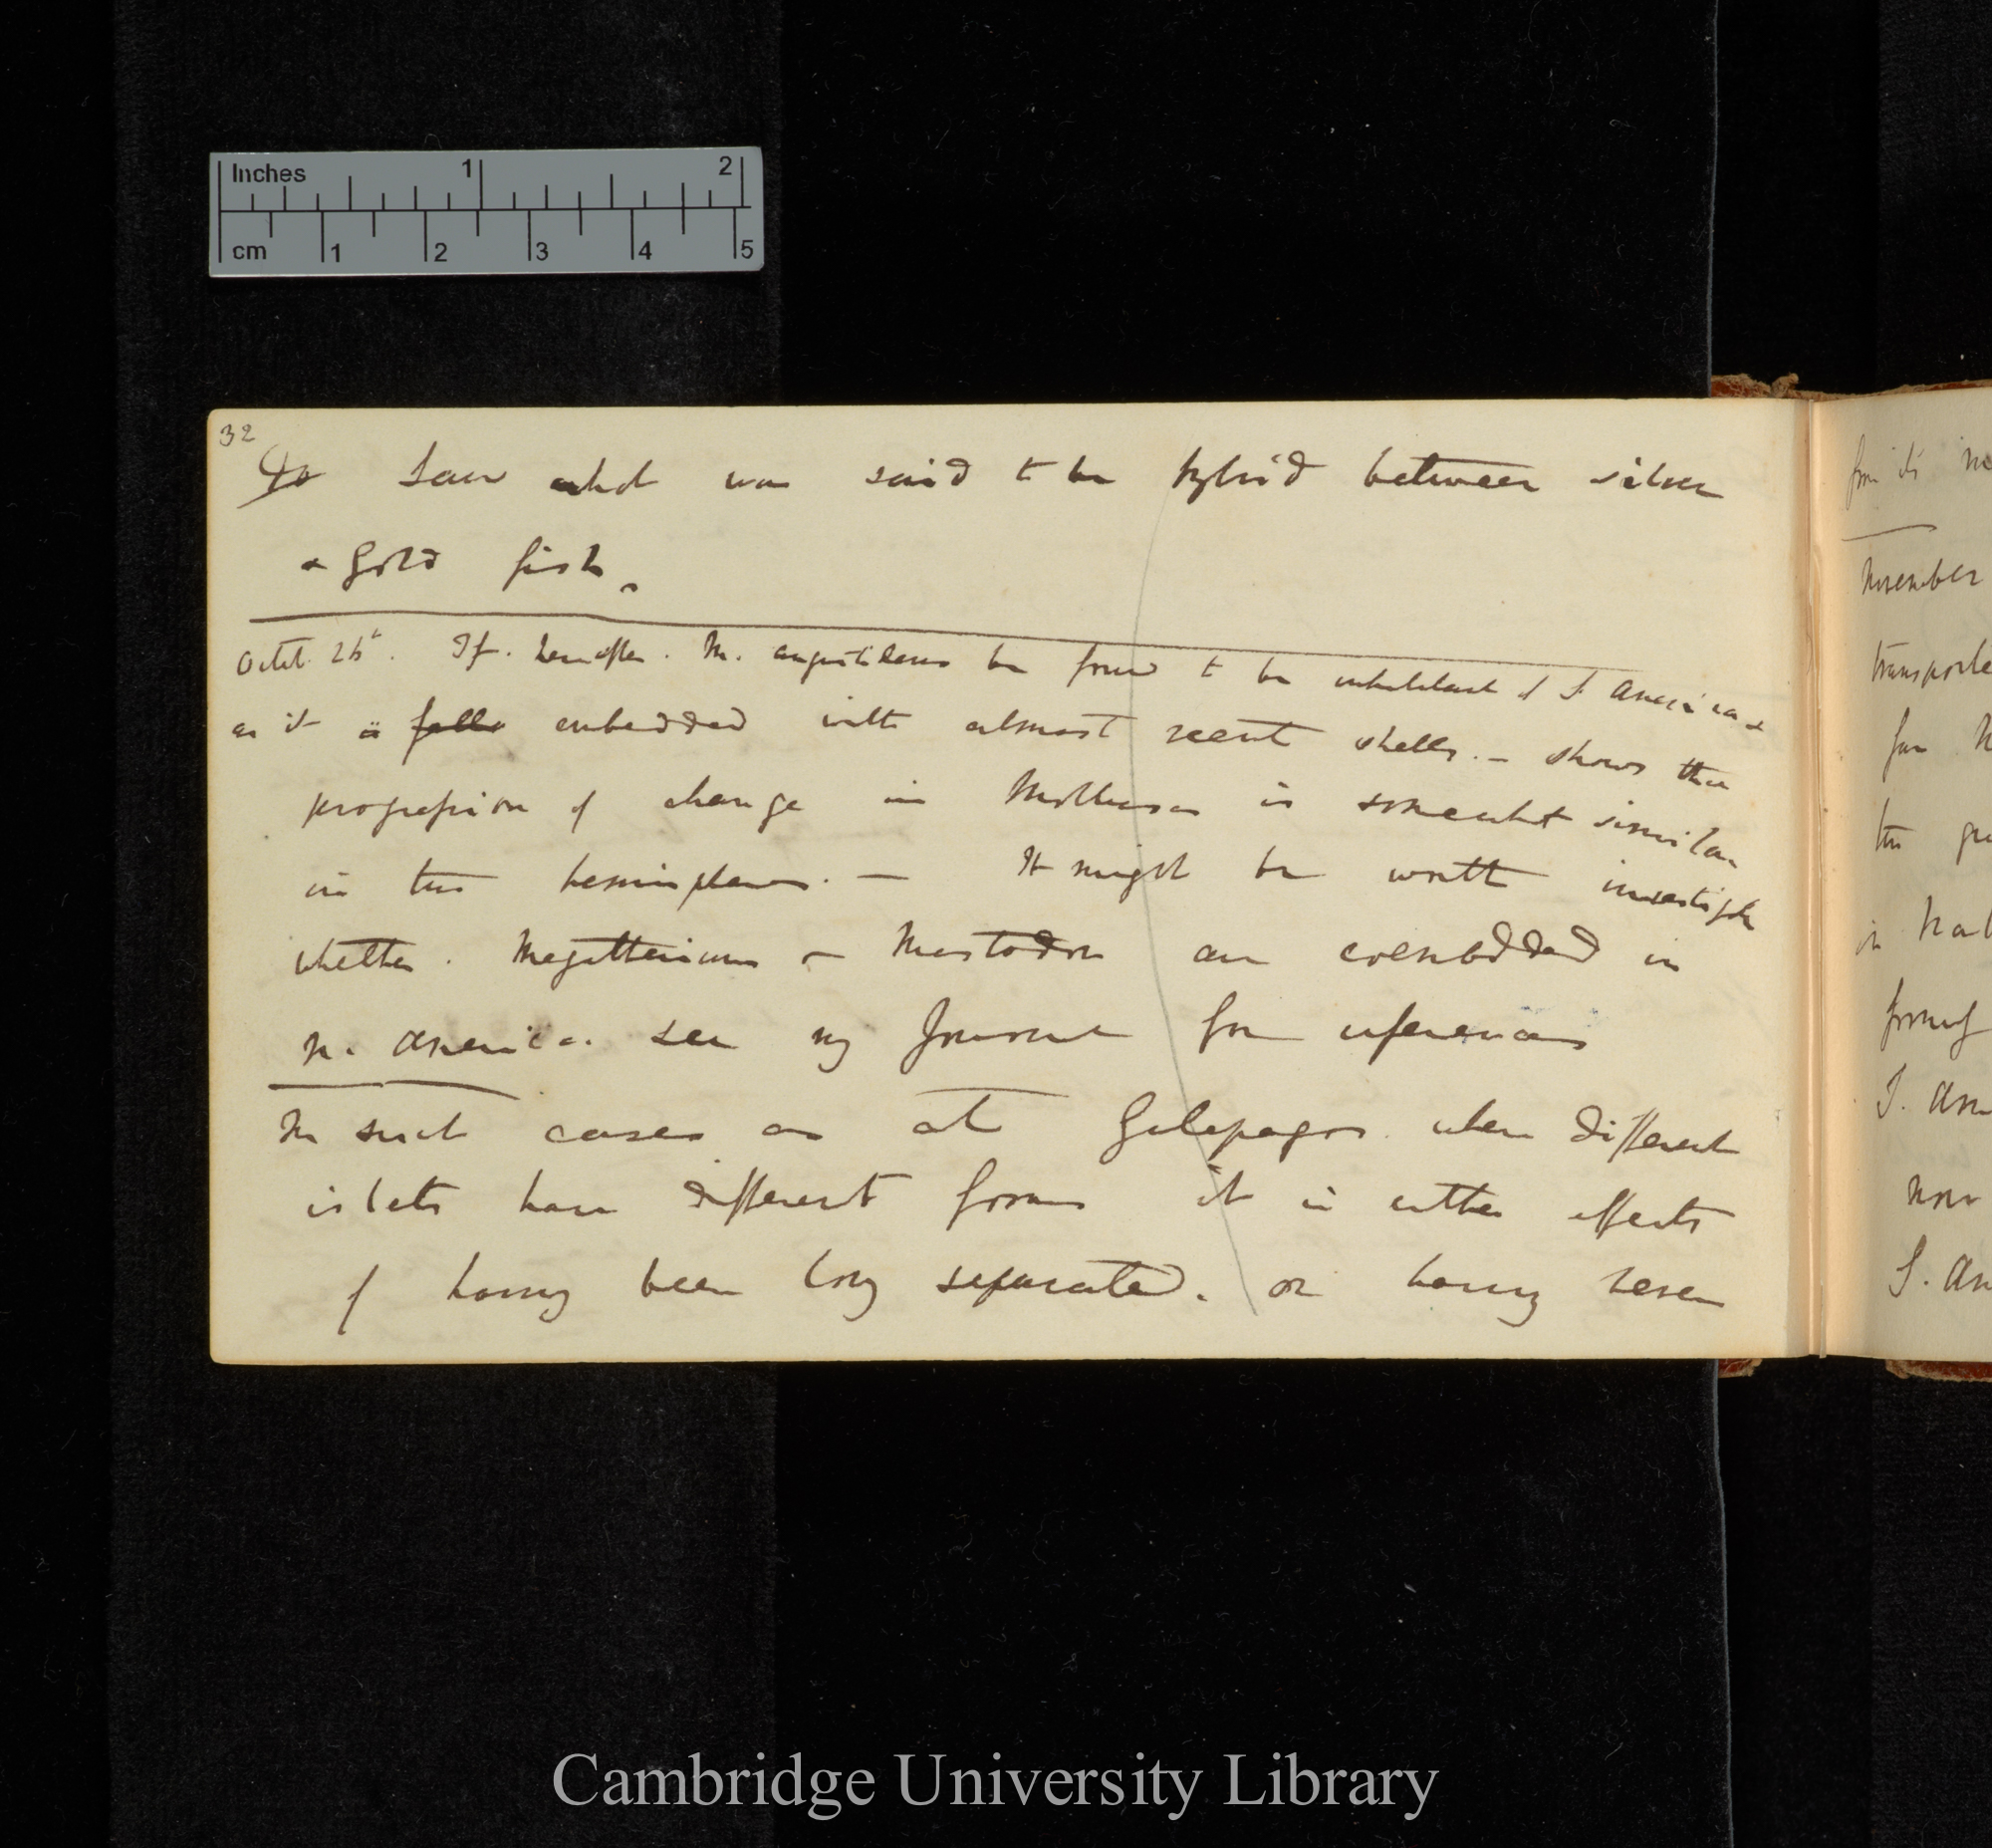 Inches 1 2
cm 1 2 3 4 5
32
Do saw what was said to be hybrid between silver
& gold fish.
Octob. 26th. If. hereafter. M. angustidens be found to be inhabitant of S. America &
as it is falls embedded with almost recent shells. — shows the
progression of change in Mollusca is somewhat similar
in two hemispheres. — It might be worth investigate
whether. Megatherium & Mastodon are coembedded in
N. America. see my Journal for references
In such cases as at Galapagos. where different
islets have different forms it is either effects
of having been long separated. or having never
from its
November
transporte
for
the
in
S. Am
now
S. Am
Cambridge University Library